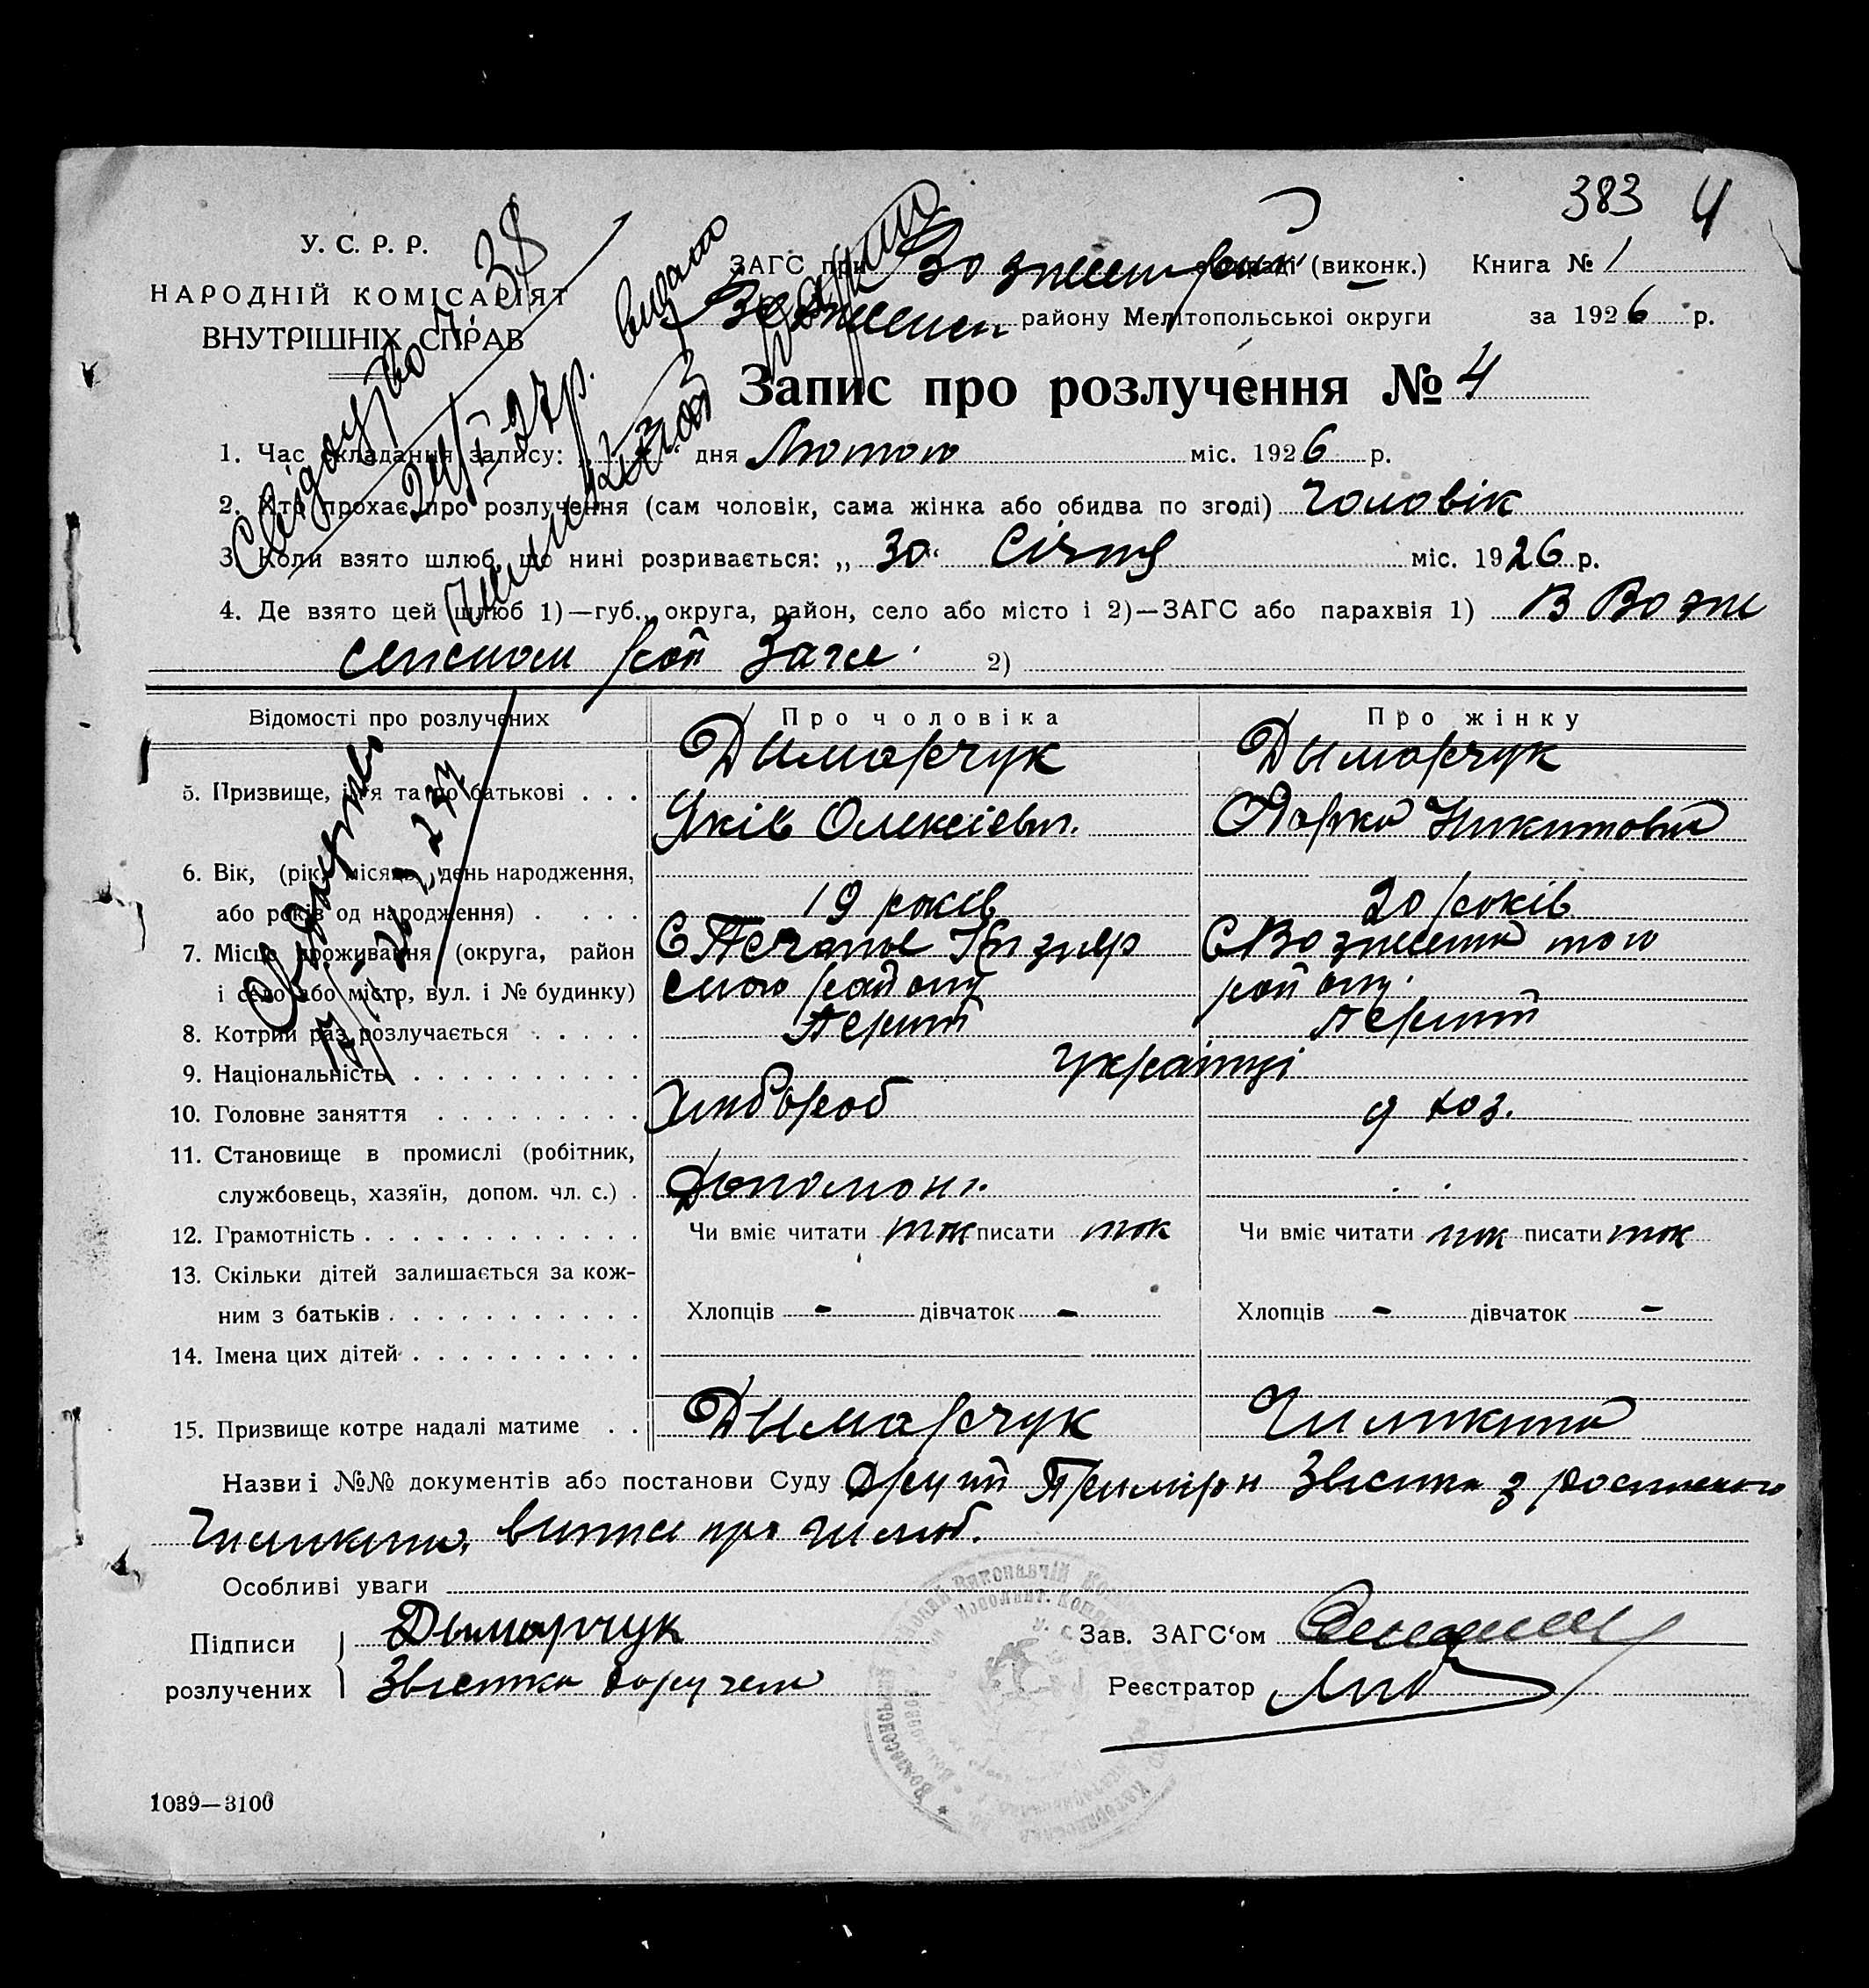 383 4
У. С. Р. Р.
НАРОДНІЙ КОМІСАРІЯТ
ВНУТРІШНІХ СПРАВ
ЗАГС при Вознесен (виконк.) Книга № 1
Вознесен району Мелітопольської округи за 1926 р.
Запис про розлучення № 4
1. Час складання запису: дня Лютого міс. 1926 р.
2. Хто прохає про розлучення (сам чоловік, сама жінка або обидва по згоді) Чоловік
3. Коли взято шлюб, що нині розривається: „ 30 “ Січня міс. 1926 р.
4. Де взято цей шлюб 1)—губ., округа, район, село або місто і 2)—ЗАГС або парахвія 1) В Возне
сенском рай Загсе 2)
Свідоцтво ч. 38
видано
Відомості про розлучених Про чоловіка Про жінку
Дымарчук Дымарчук
5. Призвище, ім'я та по батькові . . . Яків Олексієвич. Никитовна
6. Вік, (рік, місяць, день народження,
або років од народження) . . . . . 19 років 20 років
7. Місце проживання (округа, район С Вознесенка того
і село або місто, вул. і № будинку) ского району району.
8. Котрий раз розлучається . . . . . Перший Перший
9. Національність . . . . . . . . . . Українці
10. Головне заняття . . . . . . . . . Хлібороб д хоз.
11. Становище в промислі (робітник,
службовець, хазяїн, допом. чл. с.) . Допомож.
12. Грамотність . . . . . . . . . . . . Чи вміє читати так писати так Чи вміє читати так писати так
13. Скільки дітей залишається за кож-
ним з батьків . . . . . . . . . . . Хлопців - дівчаток - Хлопців - дівчаток -
14. Імена цих дітей . . . . . . . . . .
15. Призвище котре надалі матиме . . Дымарчук Чиликина
Назви і №№ документів або постанови Суду Другий Примірн Звістки з роспискою
Чиликина, витяг про шлюб.
Особливі уваги
Підписи Дымарчук Зав. ЗАГС‘ом
розлучених Звістка доручена Реєстратор
1039—3100